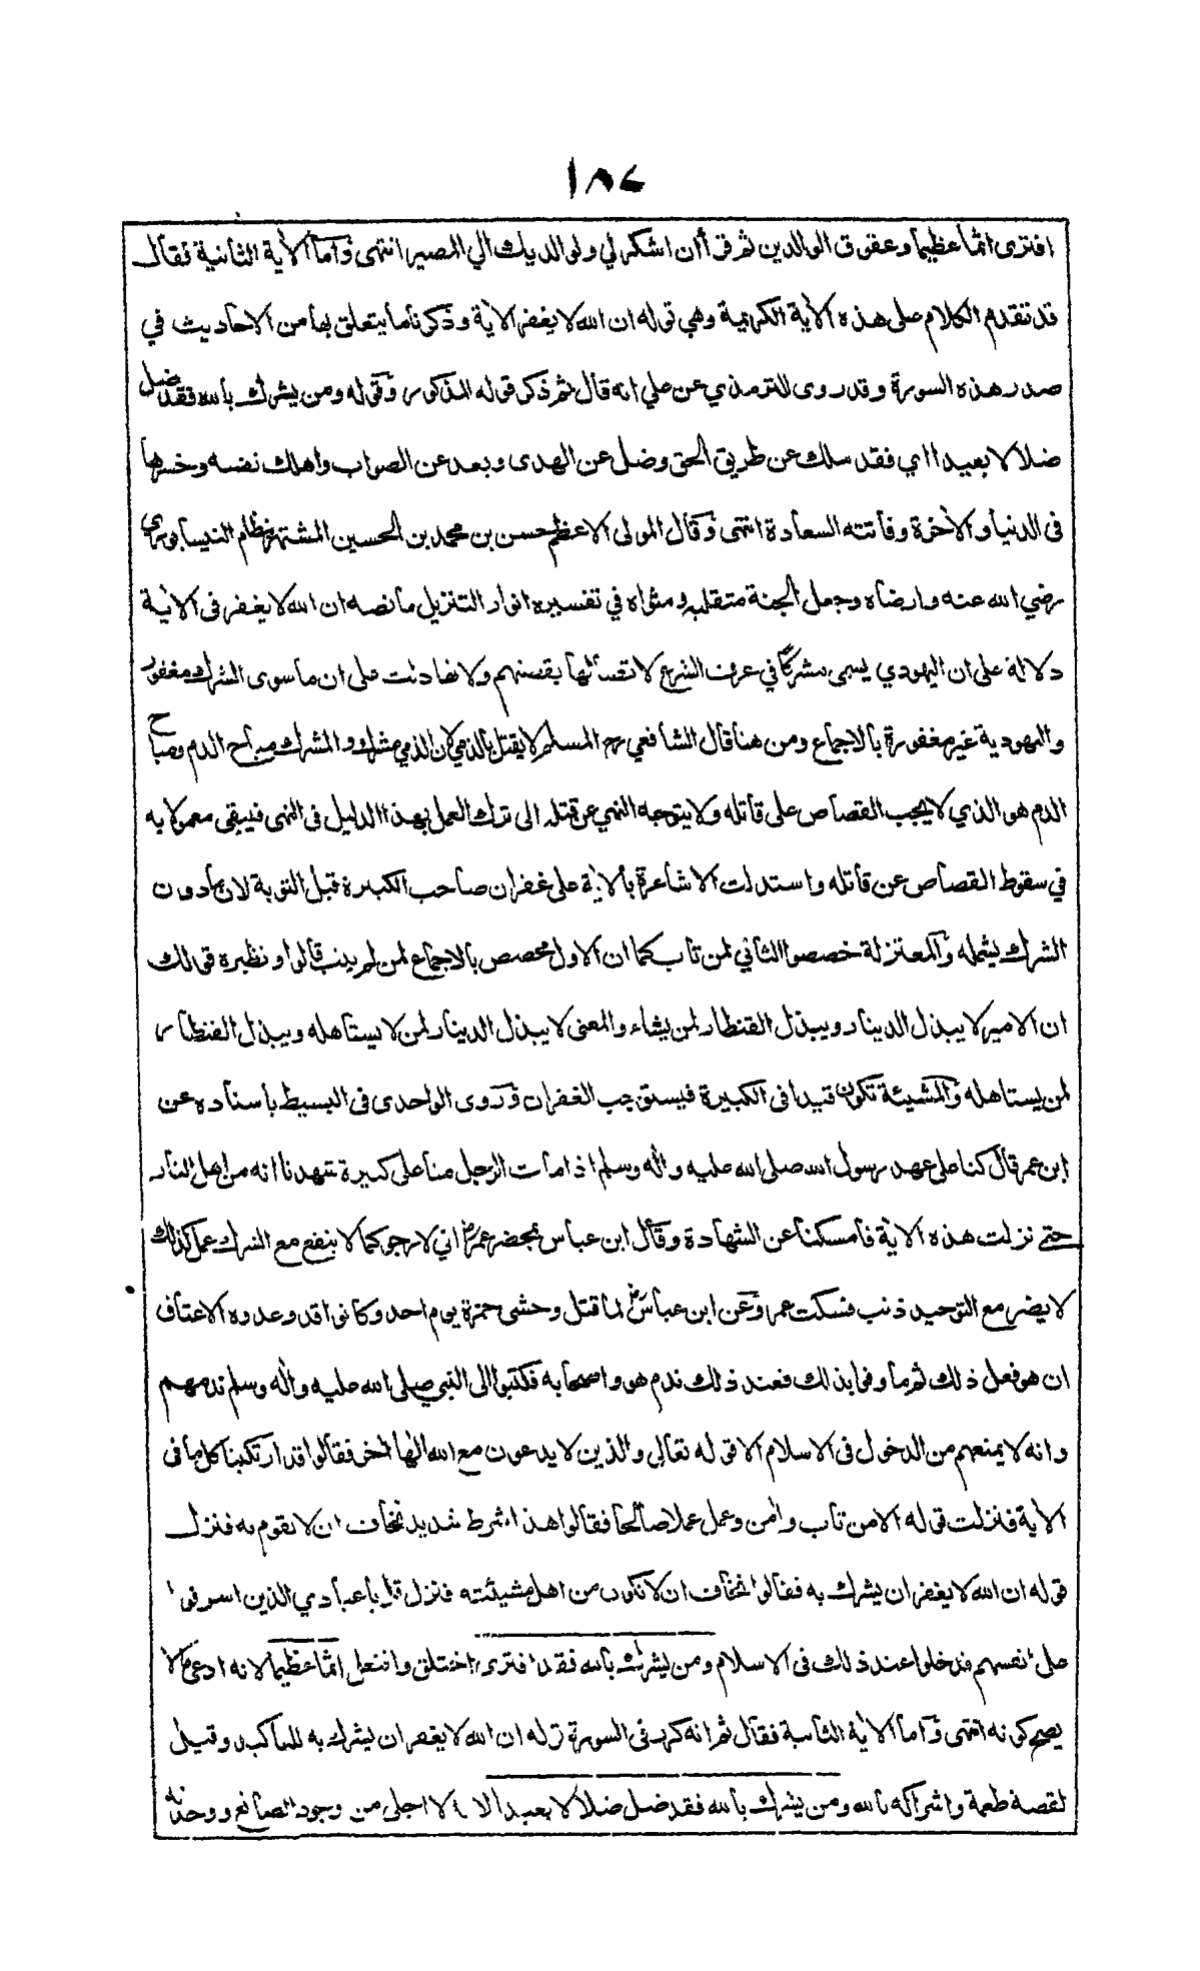 ١٨٤
افترى اثما عظيما وعقوق الوالدين ثم قرأ ان اشكر لي ولوالديك الي المصير انتهى وأما الآية الثانية فقال
قد تقدم الكلام على هذه الآية الكريمة وهي قوله ان الله لا يغفر الآية وذكرنا ما يتعلق بها من الاحاديث في
صدر هذه السورة وقد روى للترمذي عن علي انه قال ثم ذكر قوله المذكور وقوله ومن يشرك بالله فقد ضل
ضلالا بعيدا اي فقد سلك عن طريق الحق وضل عن الهدى وبعد عن الصواب واهلك نفسه وخسرها
في الدنيا والآخرة وفاتته السعادة انتهى وقال المولى الاعظم حسن بن محمد بن الحسين المشتهر بنظام النيسابوري
رضي الله عنه وارضاه وجعل الجنة متقلبه ومثواه في تفسيره انوار التنزيل ما نصه ان الله لا يغفر في الآية
دلالة على ان اليهودي يسمى مشركا في عرف الشرع لاتصالها بقصتهم ولانها دلت على ان ما سوى الشرك مغفور
واليهودية غير مغفورة بالاجماع ومن هنا قال الشافعي رح المسلم لا يقتل بالذمي لان الذمي مشرك والمشرك مباح الدم ومباح
الدم هو الذي لا يجب القصاص على قاتله ولا يتوجه النهي عن قتله الى ترك العمل بهذا الدليل في النهى فيبقى معمولا به
في سقوط القصاص عن قاتله واستدلت الاشاعرة بالآية على غفران صاحب الكبيرة قبل التوبة لان ما دون
الشرك يشمله والمعتزلة خصصوا الثاني لمن تاب كما ان الاول مخصص بالاجماع لمن لم يتب قالوا ونظيره قولك
ان الامير لا يبذل الدينار ويبذل القنطار لمن يشاء والمعنى لا يبذل الدينار لمن لا يستاهله ويبذل القنطار
لمن يستاهله والمشيئة تكون قيدا في الكبيرة فيستوجب الغفران وروى الواحدى في البسيط باسناده عن
ابن عمر قال كنا على عهد رسول الله صلى الله عليه وآله وسلم اذا مات الرجل منا على كبيرة شهدنا انه من اهل النار
حتى نزلت هذه الآية فامسكنا عن الشهادة وقال ابن عباس بمحضر عمر رض اني لارجو كما لا ينفع مع الشرك عمل كذلك
لا يضر مع التوحيد ذنب فسكت عمر وعن ابن عباس رض لما قتل وحشى حمزة يوم احد وكانوا قد وعدوه الاعتاف
ان هو فعل ذلك ثم ما وفى بذلك فعند ذلك ندم هو واصحابه فكتبوا الى النبي صلى الله عليه وآله وسلم ندمهم
وانه لا يمنعهم من الدخول في الاسلام الا قوله تعالى والذين لا يدعون مع الله الها آخر فقالوا قد ارتكبنا كل ما في
الآية فنزلت قوله الا من تاب وآمن وعمل عملا صالحا فقالوا هذا شرط شديد نخاف ان لا نقوم به فنزل
قوله ان الله لا يغفر ان يشرك به فقالوا نخاف ان لا نكون من اهل مشيئته فنزل قل يا عبادي الذين اسرفوا
على انفسهم فدخلوا عند ذلك في الاسلام ومن يشرك بالله فقد افترى اختلق وافتعل اثما عظيما لانه ادعى ما لا
يصح كونه انتهى وأما الآية الثانية فقال ثم انه كرر في السورة قوله ان الله لا يغفر ان يشرك به للتاكيد وقيل
لقصة طعمة واشراكه بالله ومن يشرك بالله فقد ضل ضلالا بعيدا لانه لا اجلى من وجود الصانع ووحدته